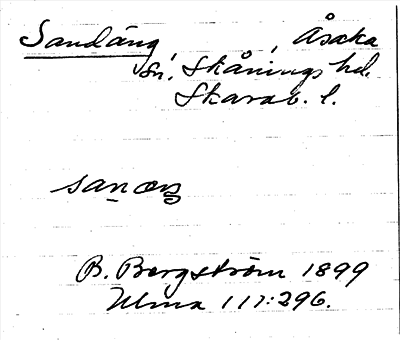 Sandäng Åsaka
sn, Skånings hd.
Skarab. l.
sanæŋ
B. Bergström 1899
Ulma 117:296.